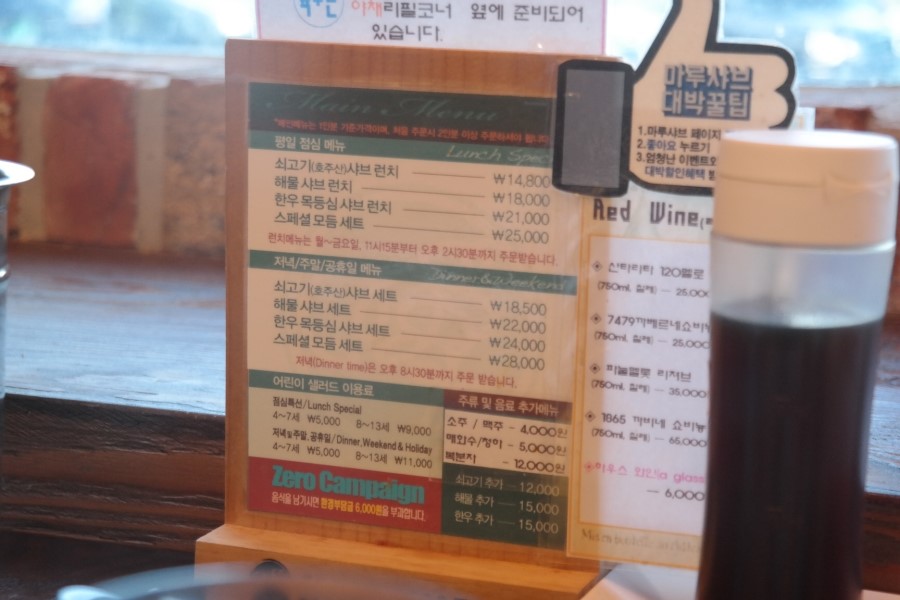 야채리필코너 옆에 준비되어
있습니다.
마루샤브
대박꿀팁
1.마루샤브 페이지
2.좋아요 누르기
3.엄청난 이벤트와
대박할인혜택
Main Menu
*메인메뉴는 1인분 기준가격이며, 처음 주문시 2인분 이상 주문하셔야 됩니다.
평일 점심 메뉴 Lunch Spec
쇠고기(호주산)샤브 런치 ₩14,800
해물 샤브 런치 ₩18,000
한우 목등심 샤브 런치 ₩21,000
스페셜 모듬 세트 ₩25,000
런치메뉴는 월~금요일, 11시15분부터 오후 2시30분까지 주문받습니다.
저녁/주말/공휴일 메뉴 Dinner&Weekend
쇠고기(호주산)샤브 세트 ₩18,500
해물 샤브 세트 ₩22,000
한우 목등심 샤브 세트 ₩24,000
스페셜 모듬 세트 ₩28,000
저녁(Dinner time)은 오후 8시30분까지 주문 받습니다.
어린이 샐러드 이용료
점심특선/Lunch Special
4~7세 ₩5,000 8~13세 ₩9,000
저녁및주말, 공휴일/Dinner, Weekend & Holiday
4~7세 ₩5,000 8~13세 ₩11,000
Zero Campaign
음식을 남기시면 환경부담금 6,000원을 부과합니다.
주류 및 음료 추가메뉴
소주 / 맥주 - 4,000원
매화수/청하 - 5,000원
복분자 - 12,000원
쇠고기 추가 — 12,000
해물 추가 — 15,000
한우 추가 — 15,000
Red Wine
산타리타 120멜로
(750ml, 칠레) — 25,00
7479까베르네쇼비
(750ml, 칠레) — 25,00
(750ml, 칠레) — 35,000
1865 까비네 쇼비뇽
(750ml, 칠레) — 65,000
하우스 와인a glass
— 6,000